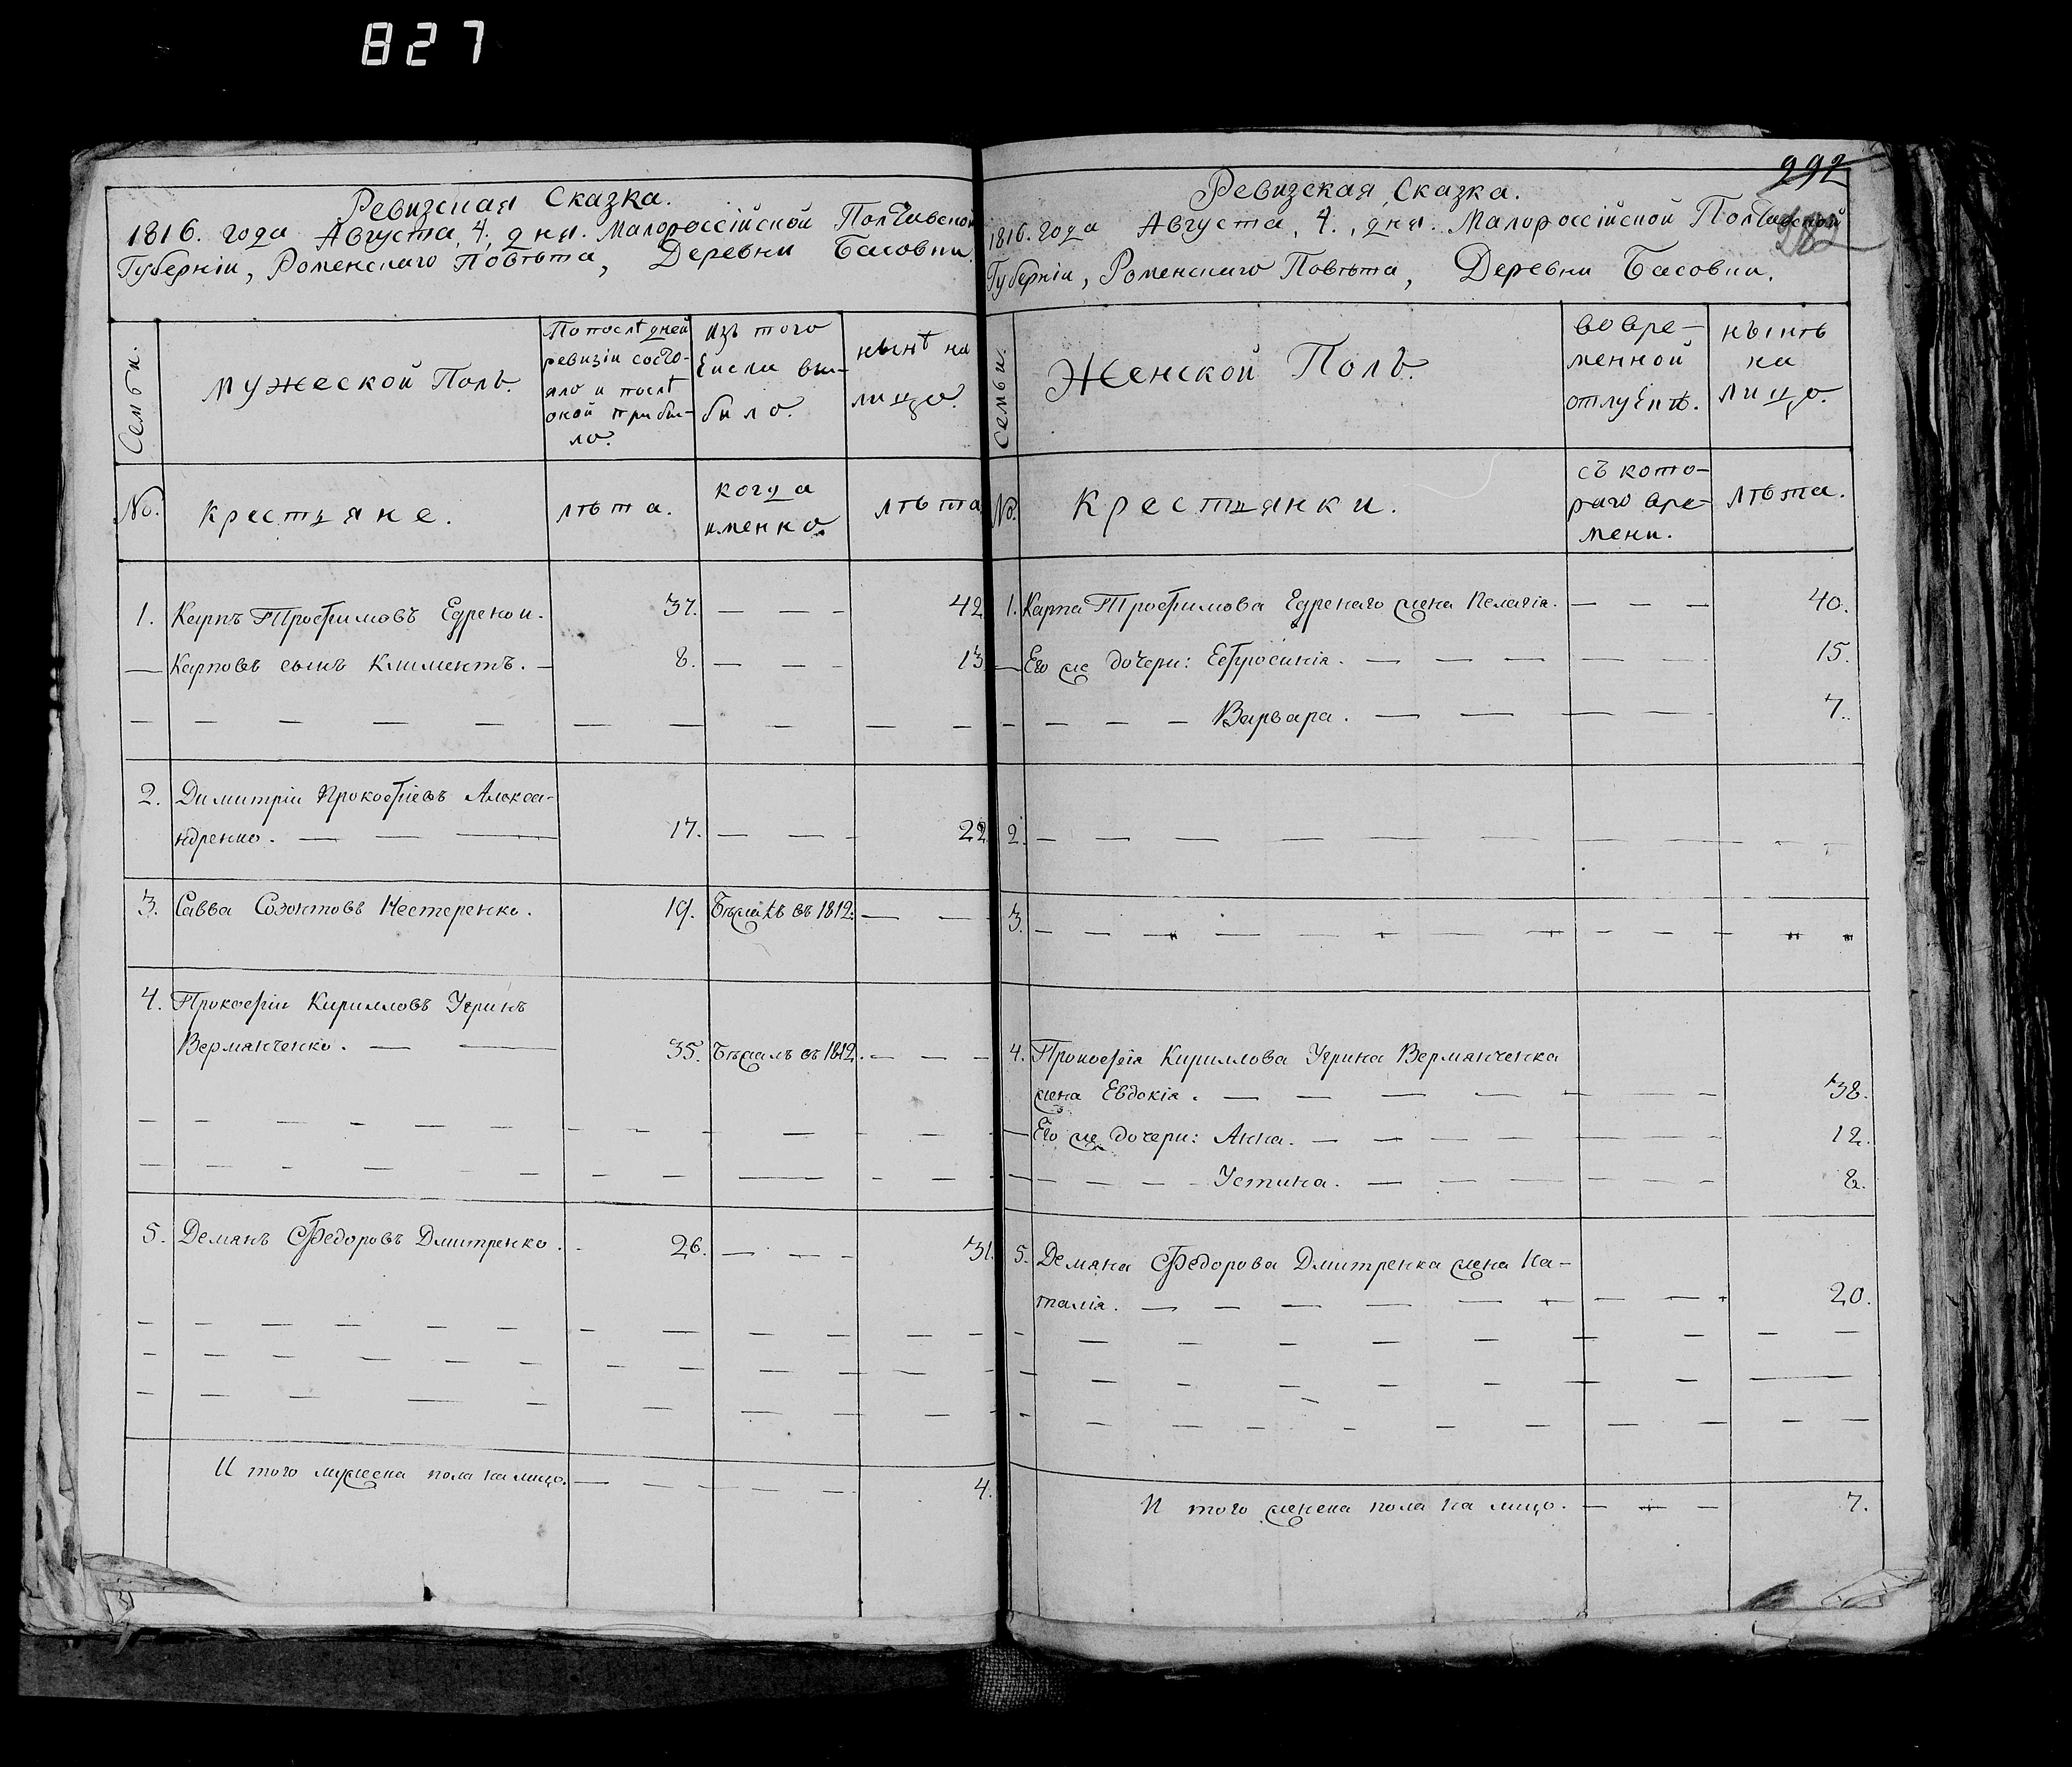 827
Ревизская Сказка.
1816. года Августа, 4, дня. Малороссійской Полтавской
Губерніи, Роменскаго Повѣта, Деревни Басовки.
Семьи.
Мужеской Полъ.
По послѣдней
ревизіи состо-
яло и послѣ
оной прибы-
ло.
изъ того
числа вы-
было.
нынѣ на
лицо.
No.
Крестьяне.
лѣта.
когда
именно.
лѣта
1. Карпъ Трофимовъ Едреной. 37. — — — 42
— Карповъ сынъ Климентъ. — 8. — — — 13
2. Димитрій Прокофіевъ Алекса-
ндренко. — — — 17. — — — 22
3. Савва Созонтовъ Нестеренко. 19. Бѣжалъ въ 1812. — —
4. Прокофій Кирилловъ Угринъ
Верманченко. — — 35. Бѣжалъ въ 1812. — — —
5. Деманъ Федоровъ Дмитренко. 26. — — — 31.
И того мужеска пола на лицо. — — — — — 4.
292
Ревизская Сказка.
1816. года Августа, 4., дня. Малороссійской Полтавской
Губерніи, Роменскаго Повѣта, Деревни Басовки.
Семьи.
Женской Полъ.
во вре-
менной
отлучкѣ.
нынѣ
на
лицо.
No.
Крестьянки.
съ кото-
раго вре-
мени.
лѣта.
1. Карпа Трофимова Едренаго жена Пелагія. — — — 40.
— Его же дочери: Ефросинія. — — — — — 15.
— — — — — Варвара. — — — — 7.
2. — — — — — — — — — —
3. — — — — — — — — — —
4. Прокофія Кириллова Угрина Верманченка
жена Евдокія. — — — — — — — 38.
— Его же дочери: Анна. — — — — — — 12.
— — — — — Устина. — — — — — — 8.
5. Демана Федорова Дмитренка жена На-
талія. — — — — — — — — — 20.
И того женска пола на лицо. — — — 7.